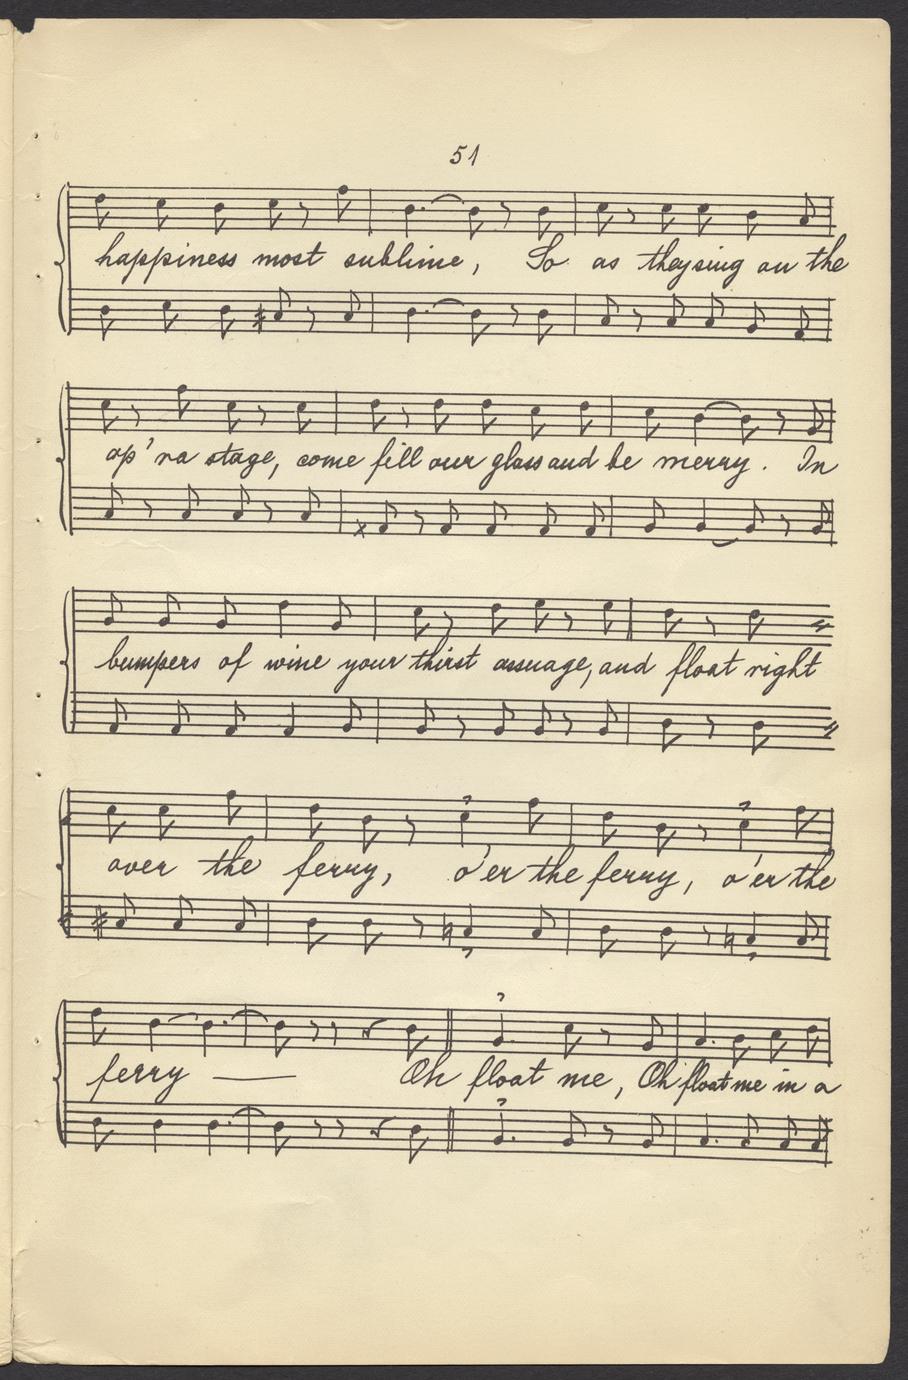 51
happiness most sublime, So as they sing on the
op'ra stage, come fill our glass and be merry. In
bumpers of wine your thirst assuage, and float right
over the ferry, o'er the ferry, o'er the
ferry — Oh float me, Oh float me in a